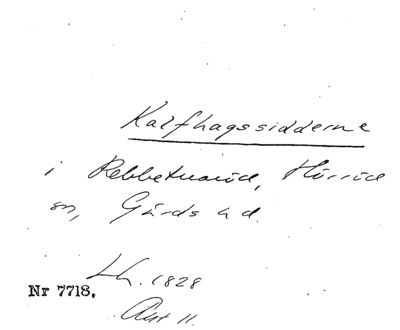 Kalfhagssidderne
i Rebbetuaröd, Hörröd
sn, Gärds hd.
Lh. 1828
Nr 7718.
Akt 11.